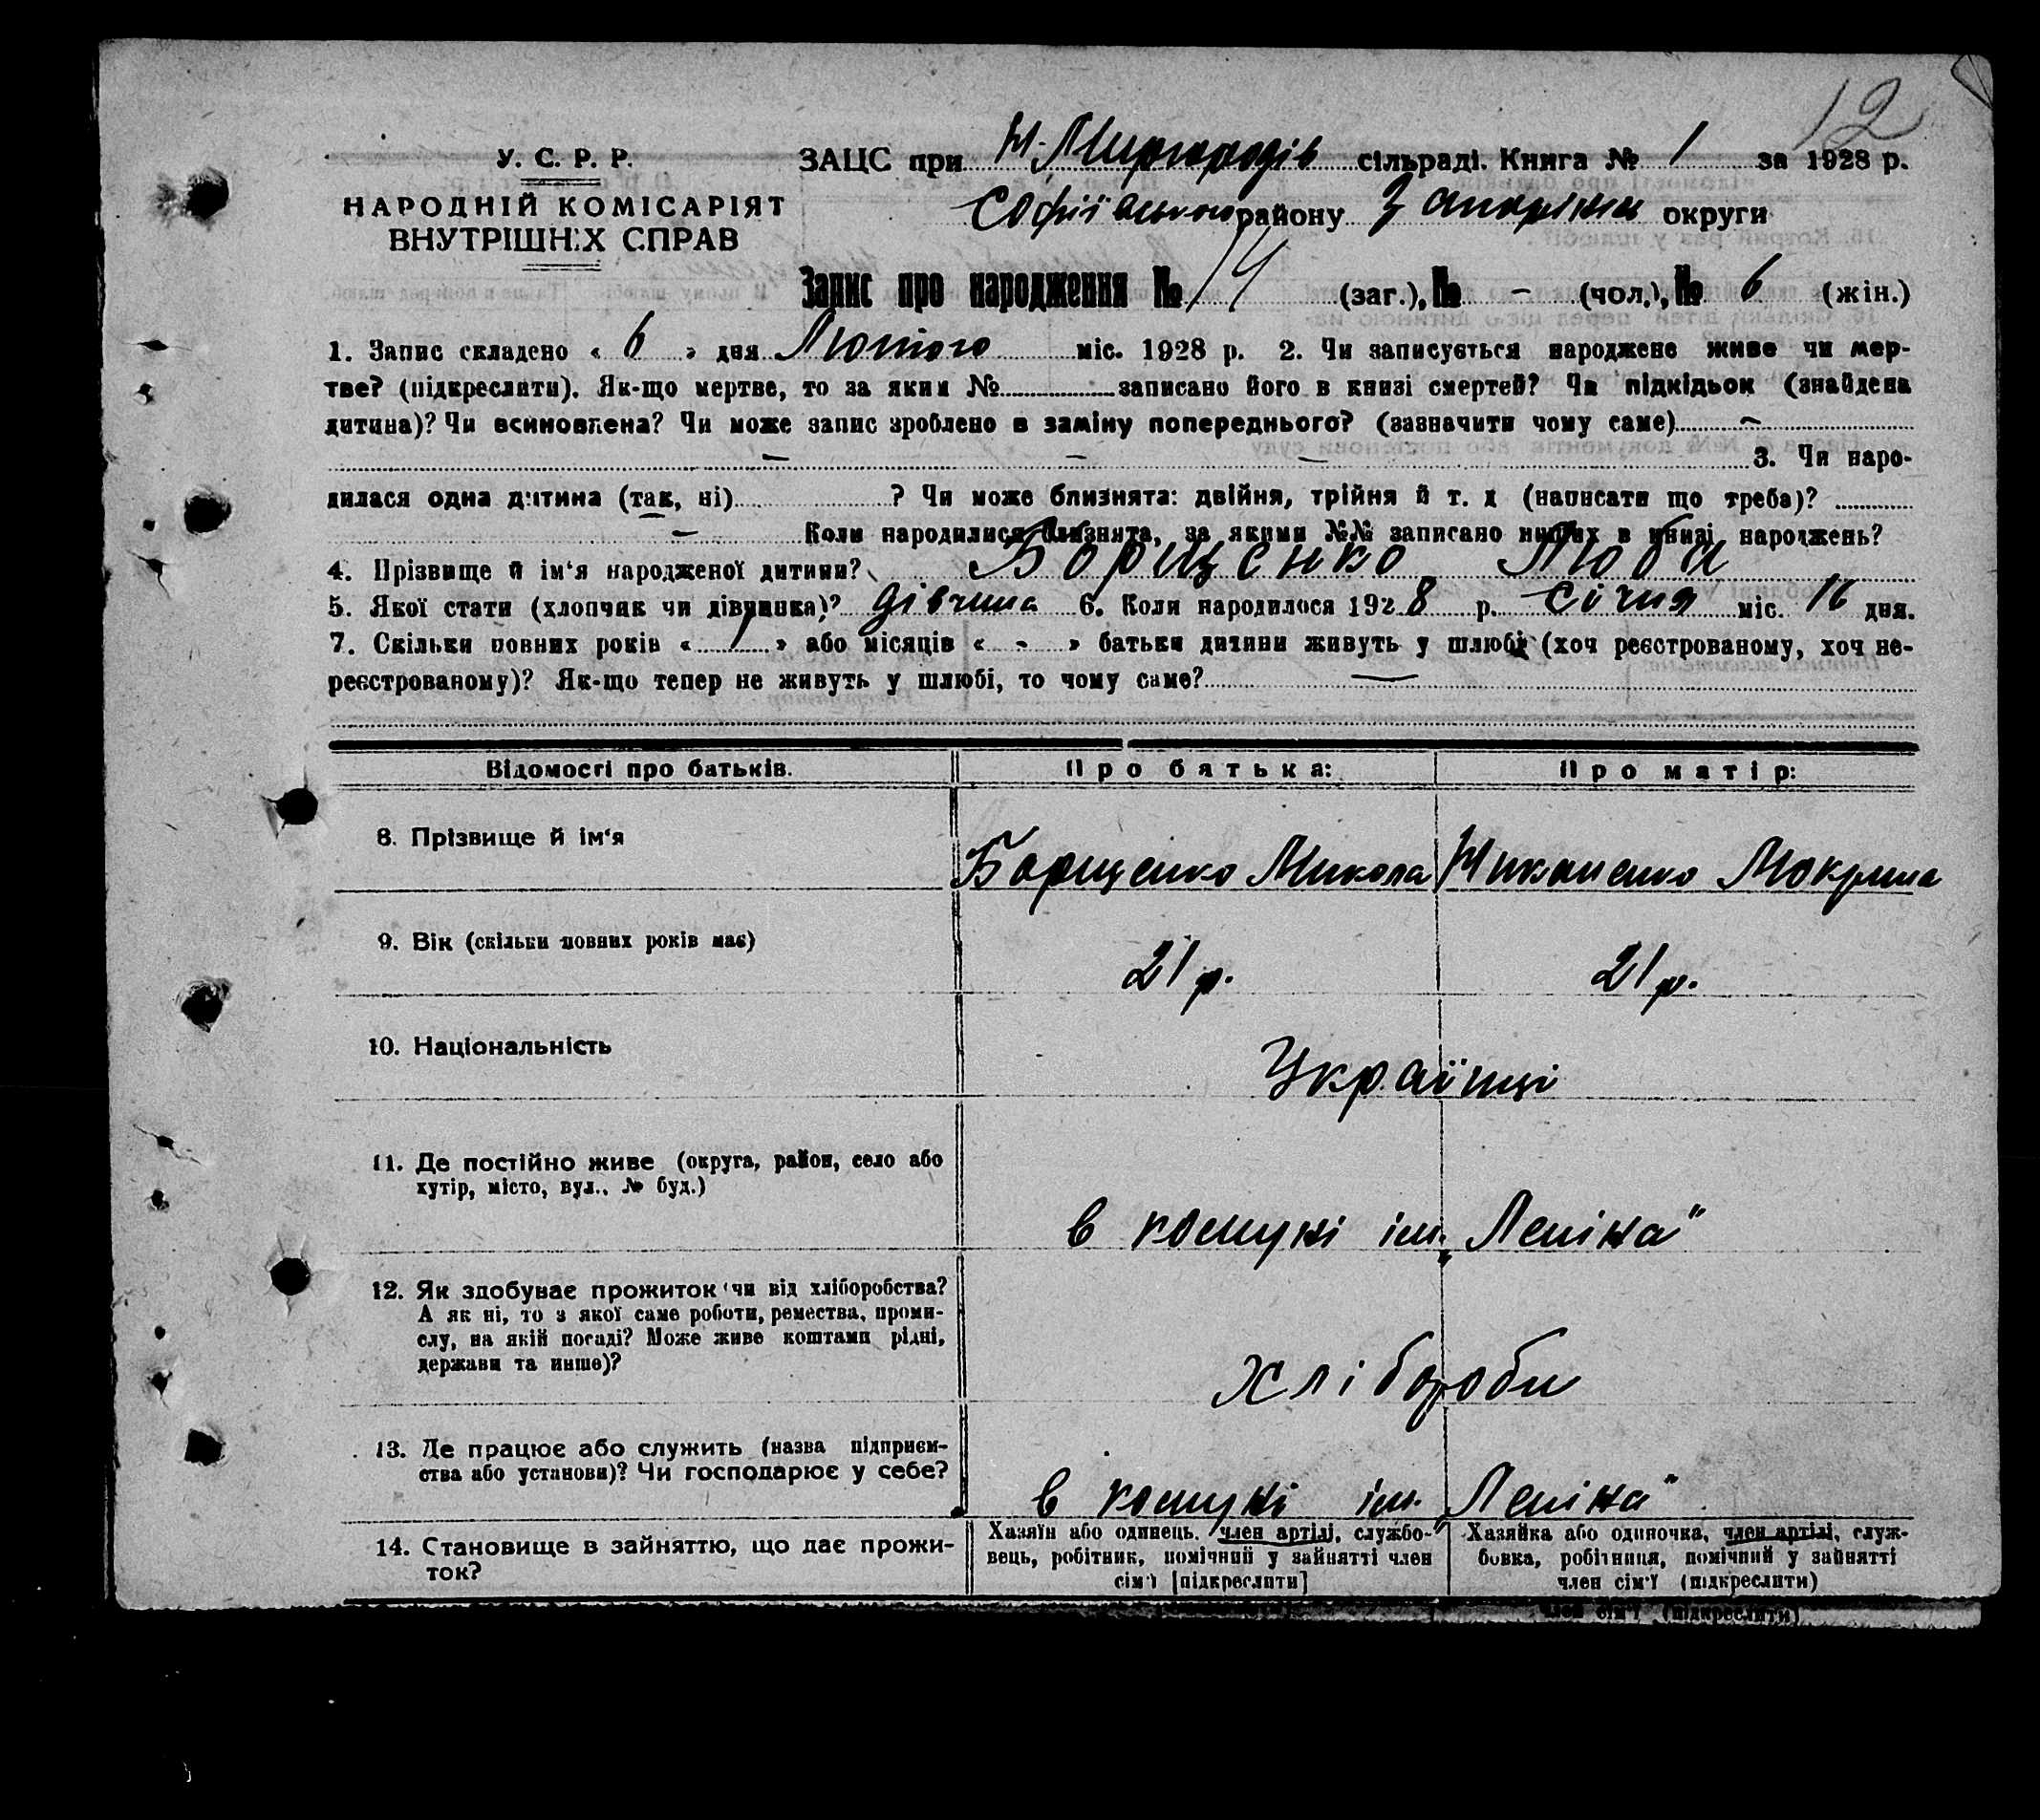 12
У. С. Р. Р.
НАРОДНІЙ КОМІСАРІЯТ
ВНУТРІШНІХ СПРАВ
ЗАЦС при Н-Миргородів сільраді. Книга № 1 за 1928 р.
Софіївського району Запоріжж округи
Запис про народження № 14 (заг.), № - (чол.), № 6 (жін.)
1. Запис складено « 6 » дня Лютого міс. 1928 р. 2. Чи записується народжене живе чи мер-
тве? (підкреслити). Як-що мертве, то за яким № записано його в книзі смертей? Чи підкідьок (знайдена
дитина)? Чи всиновлена? Чи може запис зроблено в заміну попереднього? (зазначити чому саме) —
— — — 3. Чи наро-
дилася одна дитина (так, ні) ? Чи може близнята: двійня, трійня й т. д (написати що треба)?
— Коли народилися близнята, за якими №№ записано инших в книзі народжень?
4. Прізвище й ім'я народженої дитини? Борщенко Люба
5. Якої стати (хлопчик чи дівчинка)? дівчина 6. Коли народилося 1928 р. Січня міс. 16 дня.
7. Скільки повних років « 1 » або місяців « - » батьки дитини живуть у шлюбі (хоч реєстрованому, хоч не-
реєстрованому)? Як-що тепер не живуть у шлюбі, то чому саме? —
Відомості про батьків. Про батька: Про матір:
8. Прізвище й ім'я Борщенко Микола Никоненко Мокрина
9. Вік (скільки повних років має) 21 р. 21 р.
10. Національність Українці
11. Де постійно живе (округа, район, село або
хутір, місто, вул., № буд.)
в комуні ім. „Леніна"
12. Як здобуває прожиток (чи від хліборобства?
А як ні, то з якої саме роботи, ремества, проми-
слу, на якій посаді? Може живе коштами рідні,
держави та инше)?
хлібороби
13. Де працює або служить (назва підприєм-
ства або установи)? Чи господарює у себе?
в комуні ім. „Леніна"
14. Становище в зайняттю, що дає прожи-
ток?
Хазяїн або одинець, член артілі, службо-
вець, робітник, помічний у зайнятті член
сім'ї [підкреслити]
Хазяйка або одиночка, член артілі, служ-
бовка, робітниця, помічний у зайнятті
член сім'ї (підкреслити)
член сім'ї (підкреслити)